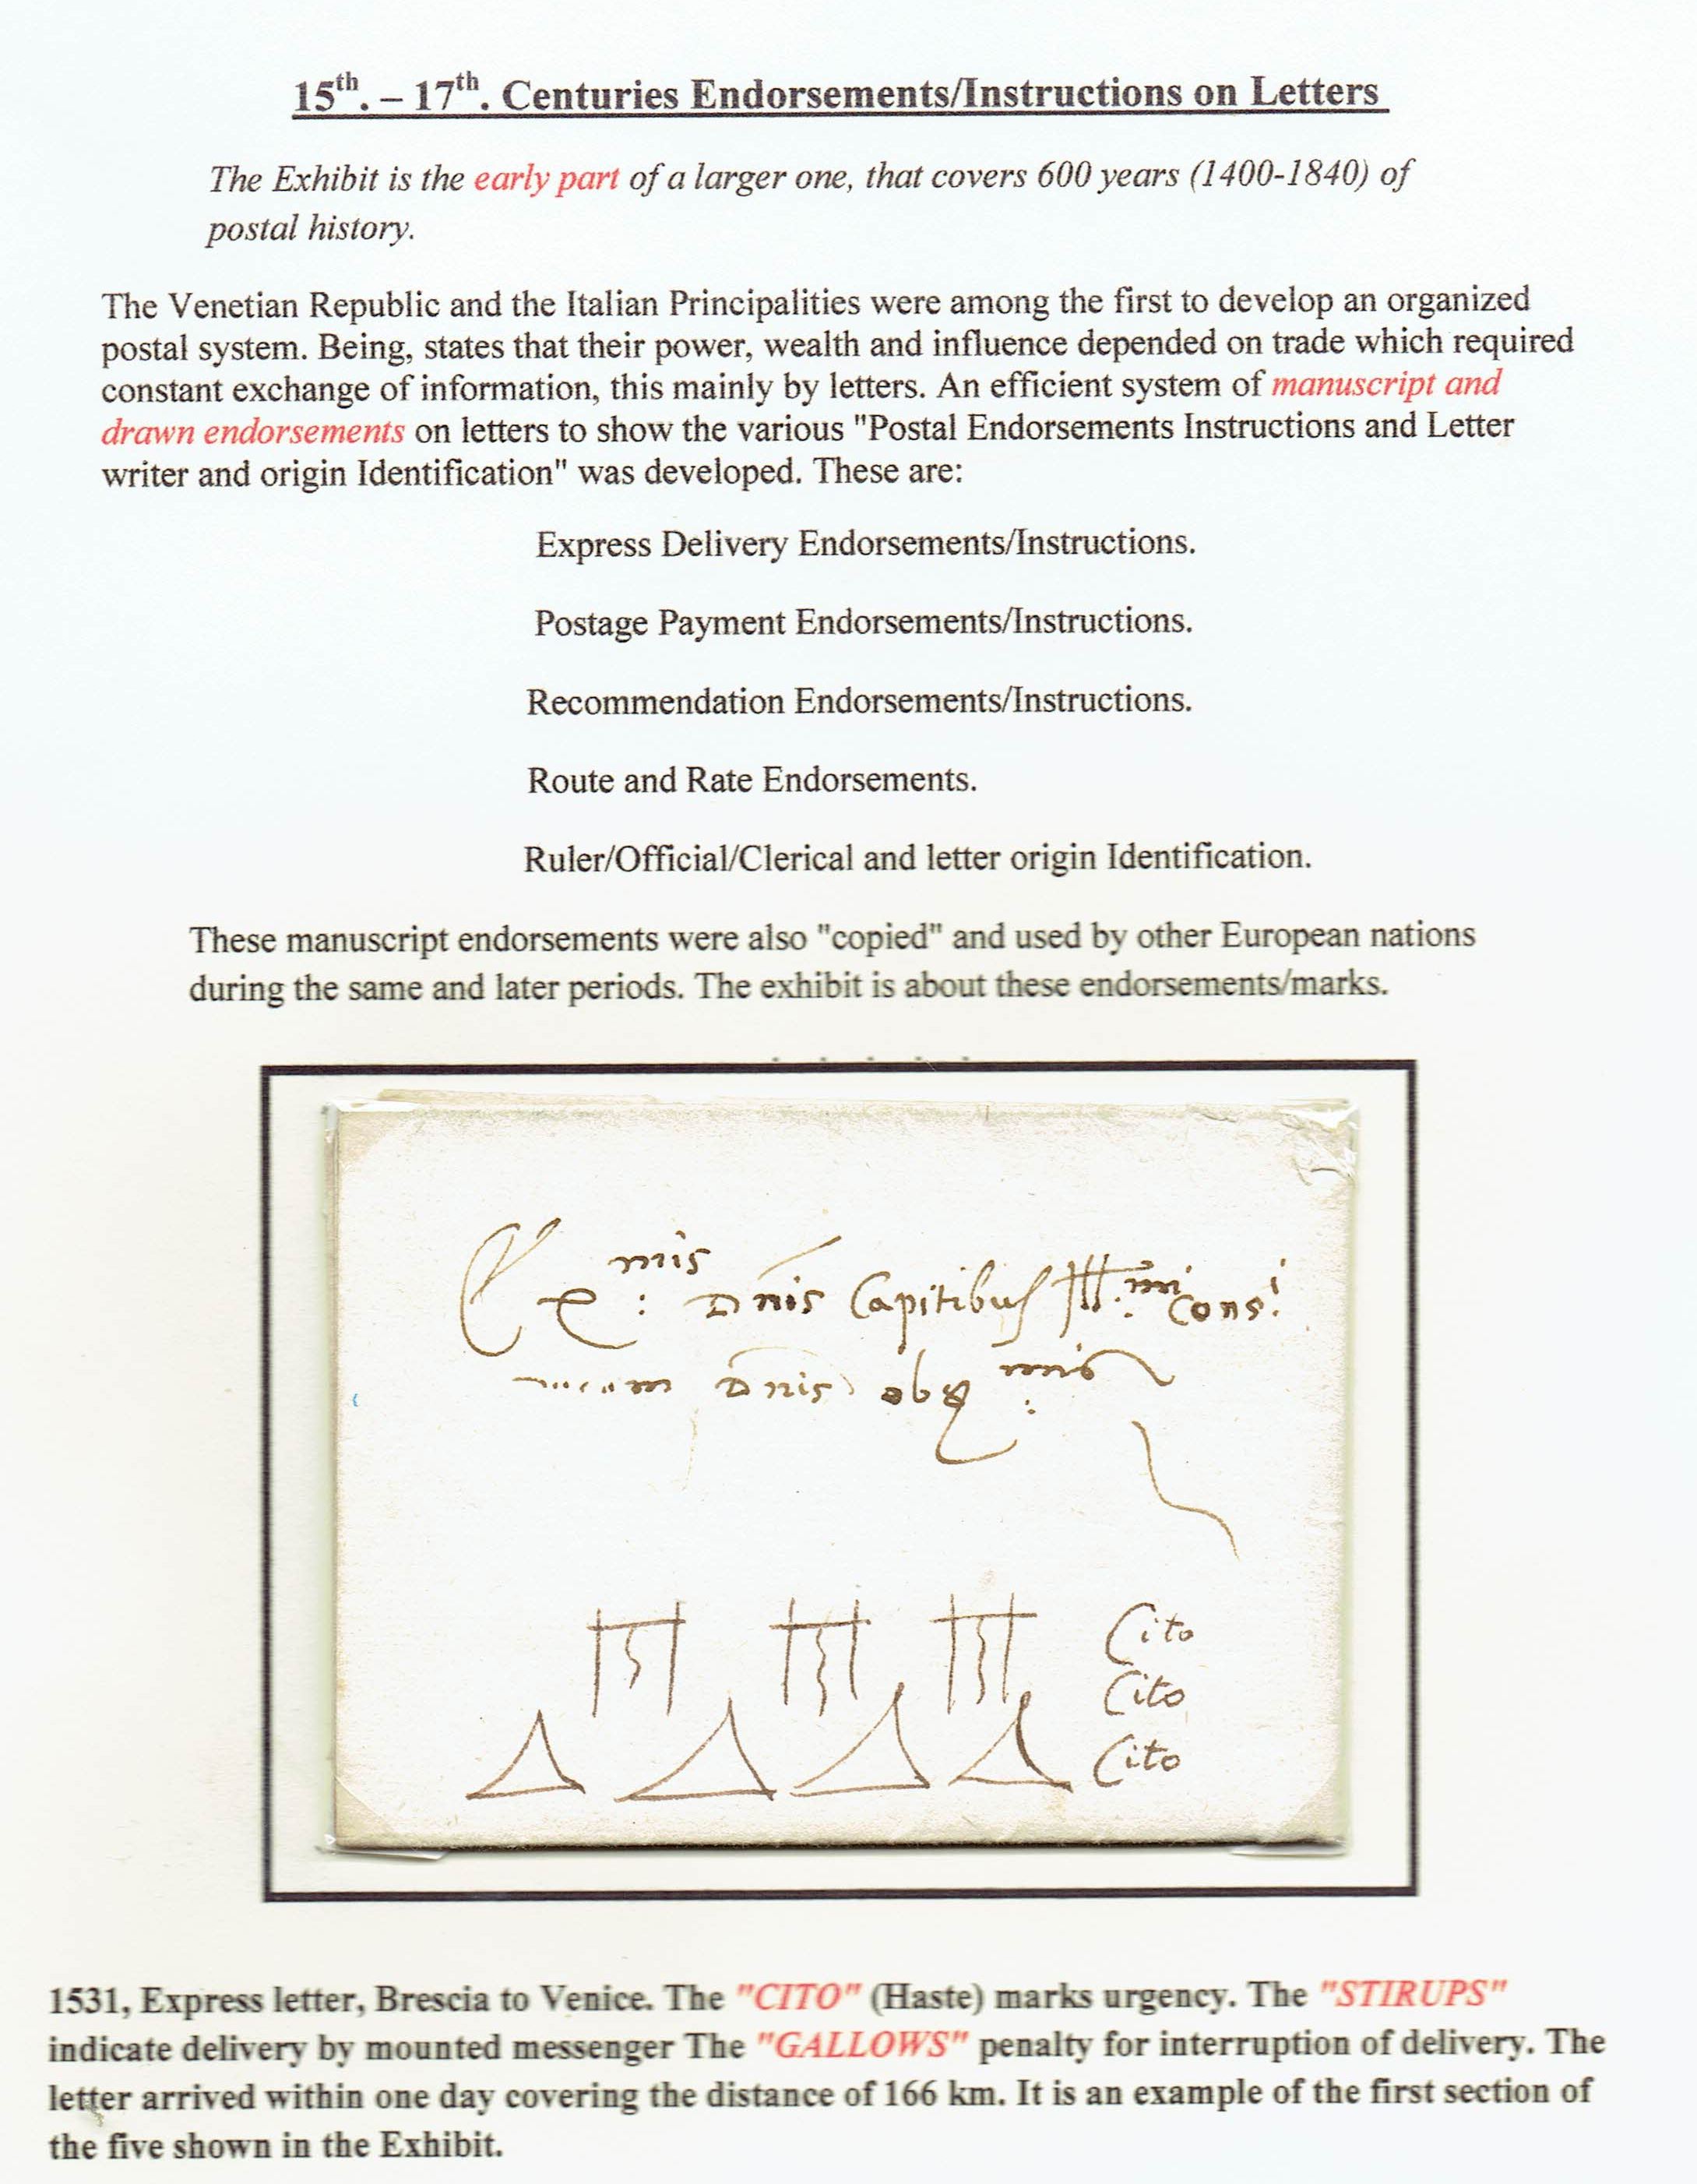 15th. – 17th. Centuries Endorsements/Instructions on Letters
The Exhibit is the early part of a larger one, that covers 600 years (1400-1840) of
postal history.
The Venetian Republic and the Italian Principalities were among the first to develop an organized
postal system. Being, states that their power, wealth and influence depended on trade which required
constant exchange of information, this mainly by letters. An efficient system of manuscript and
drawn endorsements on letters to show the various "Postal Endorsements Instructions and Letter
writer and origin Identification" was developed. These are:
Express Delivery Endorsements/Instructions.
Postage Payment Endorsements/Instructions.
Recommendation Endorsements/Instructions.
Route and Rate Endorsements.
Ruler/Official/Clerical and letter origin Identification.
These manuscript endorsements were also "copied" and used by other European nations
during the same and later periods. The exhibit is about these endorsements/marks.
Dnis Capitibus Ill.mi Cons.
Dnis
Cito
Cito
Cito
1531, Express letter, Brescia to Venice. The "CITO" (Haste) marks urgency. The "STIRUPS"
indicate delivery by mounted messenger The "GALLOWS" penalty for interruption of delivery. The
letter arrived within one day covering the distance of 166 km. It is an example of the first section of
the five shown in the Exhibit.